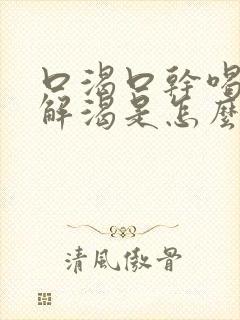 口渴口幹喝
解渴是怎麼
清風傲骨